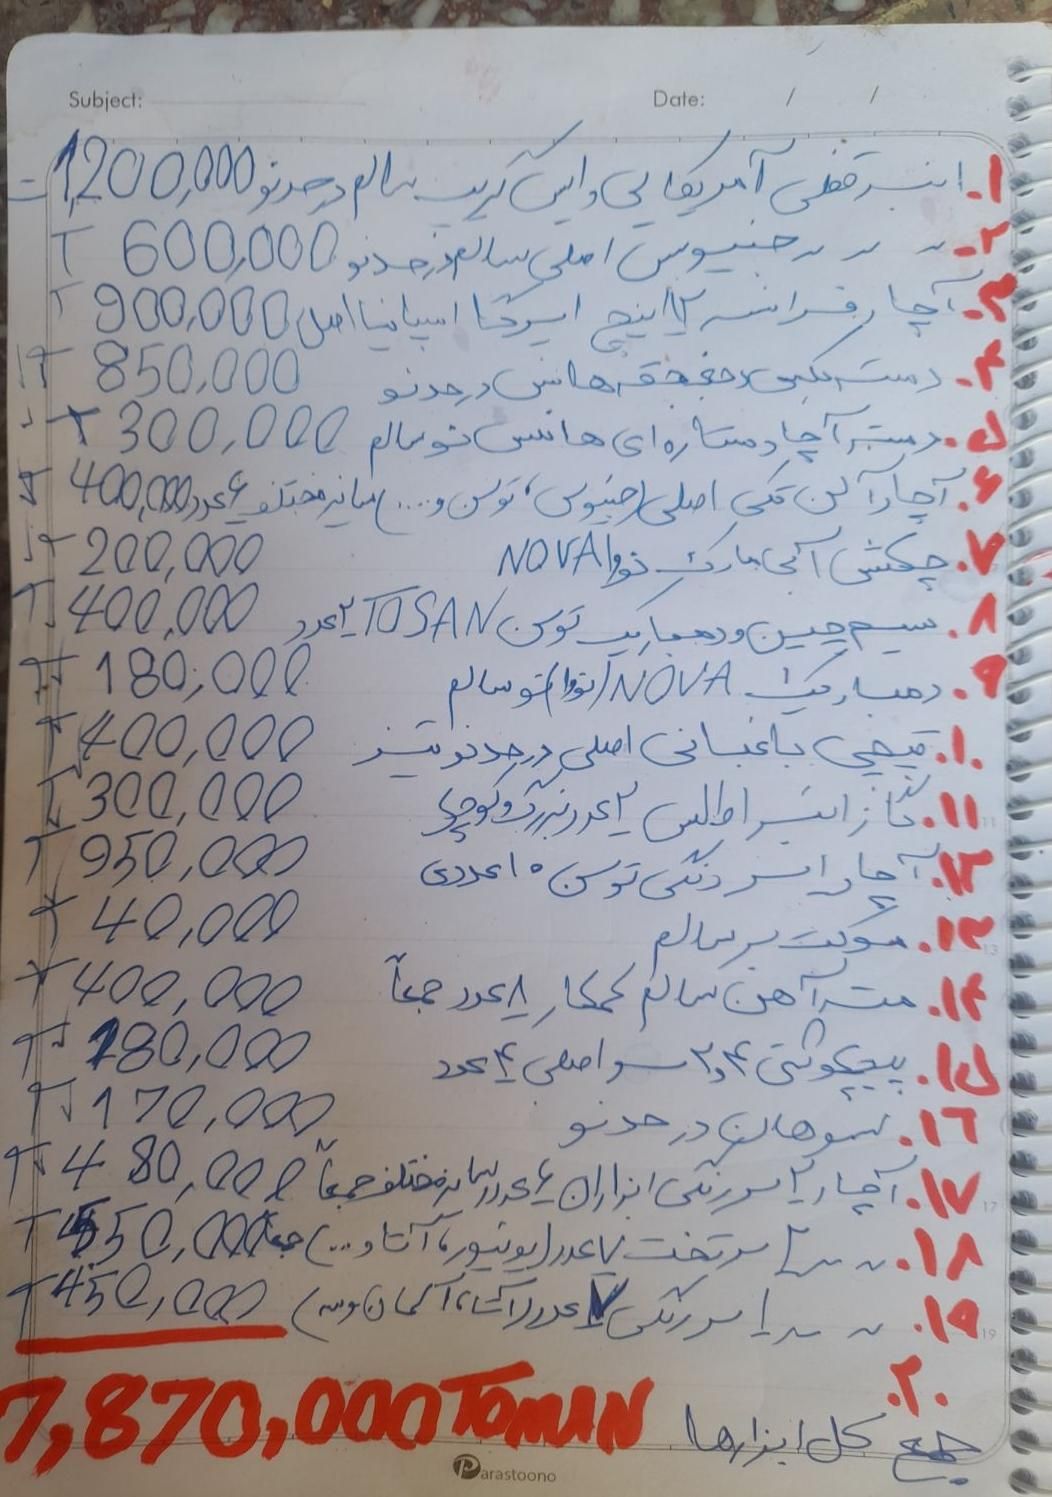 Subject: Date: / /
۱. انبر قفلی آمریکایی وایس گریپ سالم درحدنو 1,200,000
۲. " " " جنیوس اصلی سالم درحدنو 600,000 T
۳. آچار فرانسه ۱۲ اینچ ایرگا اسپانیا اصل 900,000 T
۴. دسته بکس جغجقه هانس درحدنو 850,000 T
۵. دسته آچار ستاره ای هانس نو سالم 300,000 T
۶. آچار آلن تکی اصلی (جنیوس، توسن و...) سایز مختلف ۶ عدد 400,000 T
۷. چکش آکی مارک نووا NOVA 200,000 T
۸. سیم چین و دمباریک توسن TOSAN ۲ عدد 400,000 T
۹. دمباریک NOVA (نووا) نو سالم 180,000 T
۱۰. قیچی باغبانی اصلی درحدنو تیز 400,000 T
۱۱. گاز انبر اطلس ۲ عدد بزرگ و کوچک 300,000 T
۱۲. آچار رینگی توسن ۱۰ عددی 950,000 T
۱۳. سوکت بر سالم 40,000 T
۱۴. مته آهن سالم کمکار ۸ عدد جمعاً 400,000 T
۱۵. پیچگوشتی ۴ و ۲ سو اصلی ۴ عدد 180,000 T
۱۶. سوهان درحدنو 170,000 T
۱۷. آچار ۲ سر رنگی ابزاران ۶ عدد سایز مختلف جمعاً 480,000 T
۱۸. " " ۲ سر تخت ۷ عدد (یونیور، آتا و...) جمعاً 550,000 T
۱۹. " " ۱ سر رنگی ۷ عدد (آتا، آلمان و...) 450,000 T
۲۰. جمع کل ابزارها 7,870,000 TOMAN
Parastoono